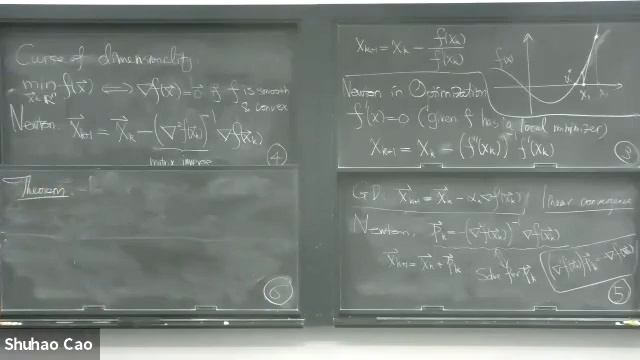 Curse of dimensionality
min f(x⃗) ⟺ ∇f(x⃗)=0⃗ if f is smooth
x⃗∈ℝⁿ & convex
Newton: x⃗ₖ₊₁ = x⃗ₖ − (∇²f(x⃗ₖ))⁻¹ ∇f(x⃗ₖ)
matrix inverse
④
Theorem:
⑥
Xₖ₊₁ = Xₖ − f(xₖ)/f'(xₖ)
f(x)
x* x₁ x₀
Newton in Optimization
f'(x)=0 (given f has a local minimizer)
Xₖ₊₁ = Xₖ − (f''(xₖ))⁻¹ f'(xₖ)
③
GD: x⃗ₖ₊₁ = x⃗ₖ − αₖ∇f(x⃗ₖ) linear convergence
Newton: p⃗ₖ = −(∇²f(x⃗ₖ))⁻¹ ∇f(x⃗ₖ)
x⃗ₖ₊₁ = x⃗ₖ + p⃗ₖ Solve for p⃗ₖ (∇²f(x⃗ₖ))p⃗ₖ = −∇f(x⃗ₖ)
⑤
Shuhao Cao